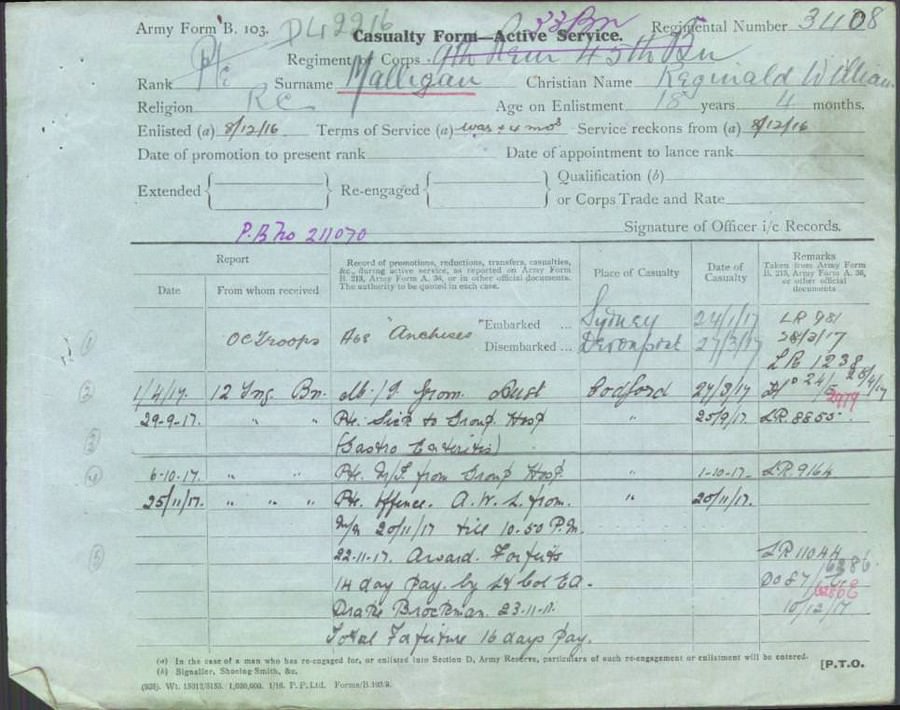 Army Form B. 103. D42216
33 Bn
Casualty Form—Active Service.
Regimental Number 3408
Regiment or Corps 45th Bn
Rank Pte Surname Malligan Christian Name Reginald William
Religion RC Age on Enlistment 18 years 4 months.
Enlisted (a) 8/12/16 Terms of Service (a) war + 4 mos Service reckons from (a) 8/12/16
Date of promotion to present rank Date of appointment to lance rank
Extended Re-engaged Qualification (b)
or Corps Trade and Rate
P.B No 211070 Signature of Officer i/c Records.
Report
Date From whom received
Record of promotions, reductions, transfers, casualties, &c., during active service, as reported on Army Form B. 213, Army Form A. 36, or in other official documents. The authority to be quoted in each case.
Place of Casualty
Date of Casualty
Remarks
Taken from Army Form B. 213, Army Form A. 36, or other official documents
1 OC Troops "Anchises" Embarked ... Sydney 24/1/17 LR 981
Disembarked ... Devonport 27/3/17 28/3/17
LR 1238
2 1/4/17. 12 Tng Bn. M/I from Aust Codford 27/3/17 28/4/17
2979
29-9-17. " " Pte. Sick to Group Hosp " 25/9/17. LR.8855
3 (Gastro Enteritis)
4 6-10-17. " " Pte. M/I from Group Hosp. " 1-10-17. LR.9164
25/11/17. " " " Pte. Offence. A.W.L. from. " 20/11/17.
m/n 20/11/17 till 10.50 P.M.
5 22.11.17. Award. Forfeits LR 11044
14 day pay. by Lt Col EA. DO 87
Drake Brockman. 23.11.17. 10/12/17
Total Forfeiture 16 days Pay.
(a) In the case of a man who has re-engaged for, or enlisted into Section D, Army Reserve, particulars of such re-engagement or enlistment will be entered.
(b) Signaller, Shoeing-Smith, &c.
[P.T.O.
1,000,000. 1/16. P.P.Ltd. Forms/B.103/2.